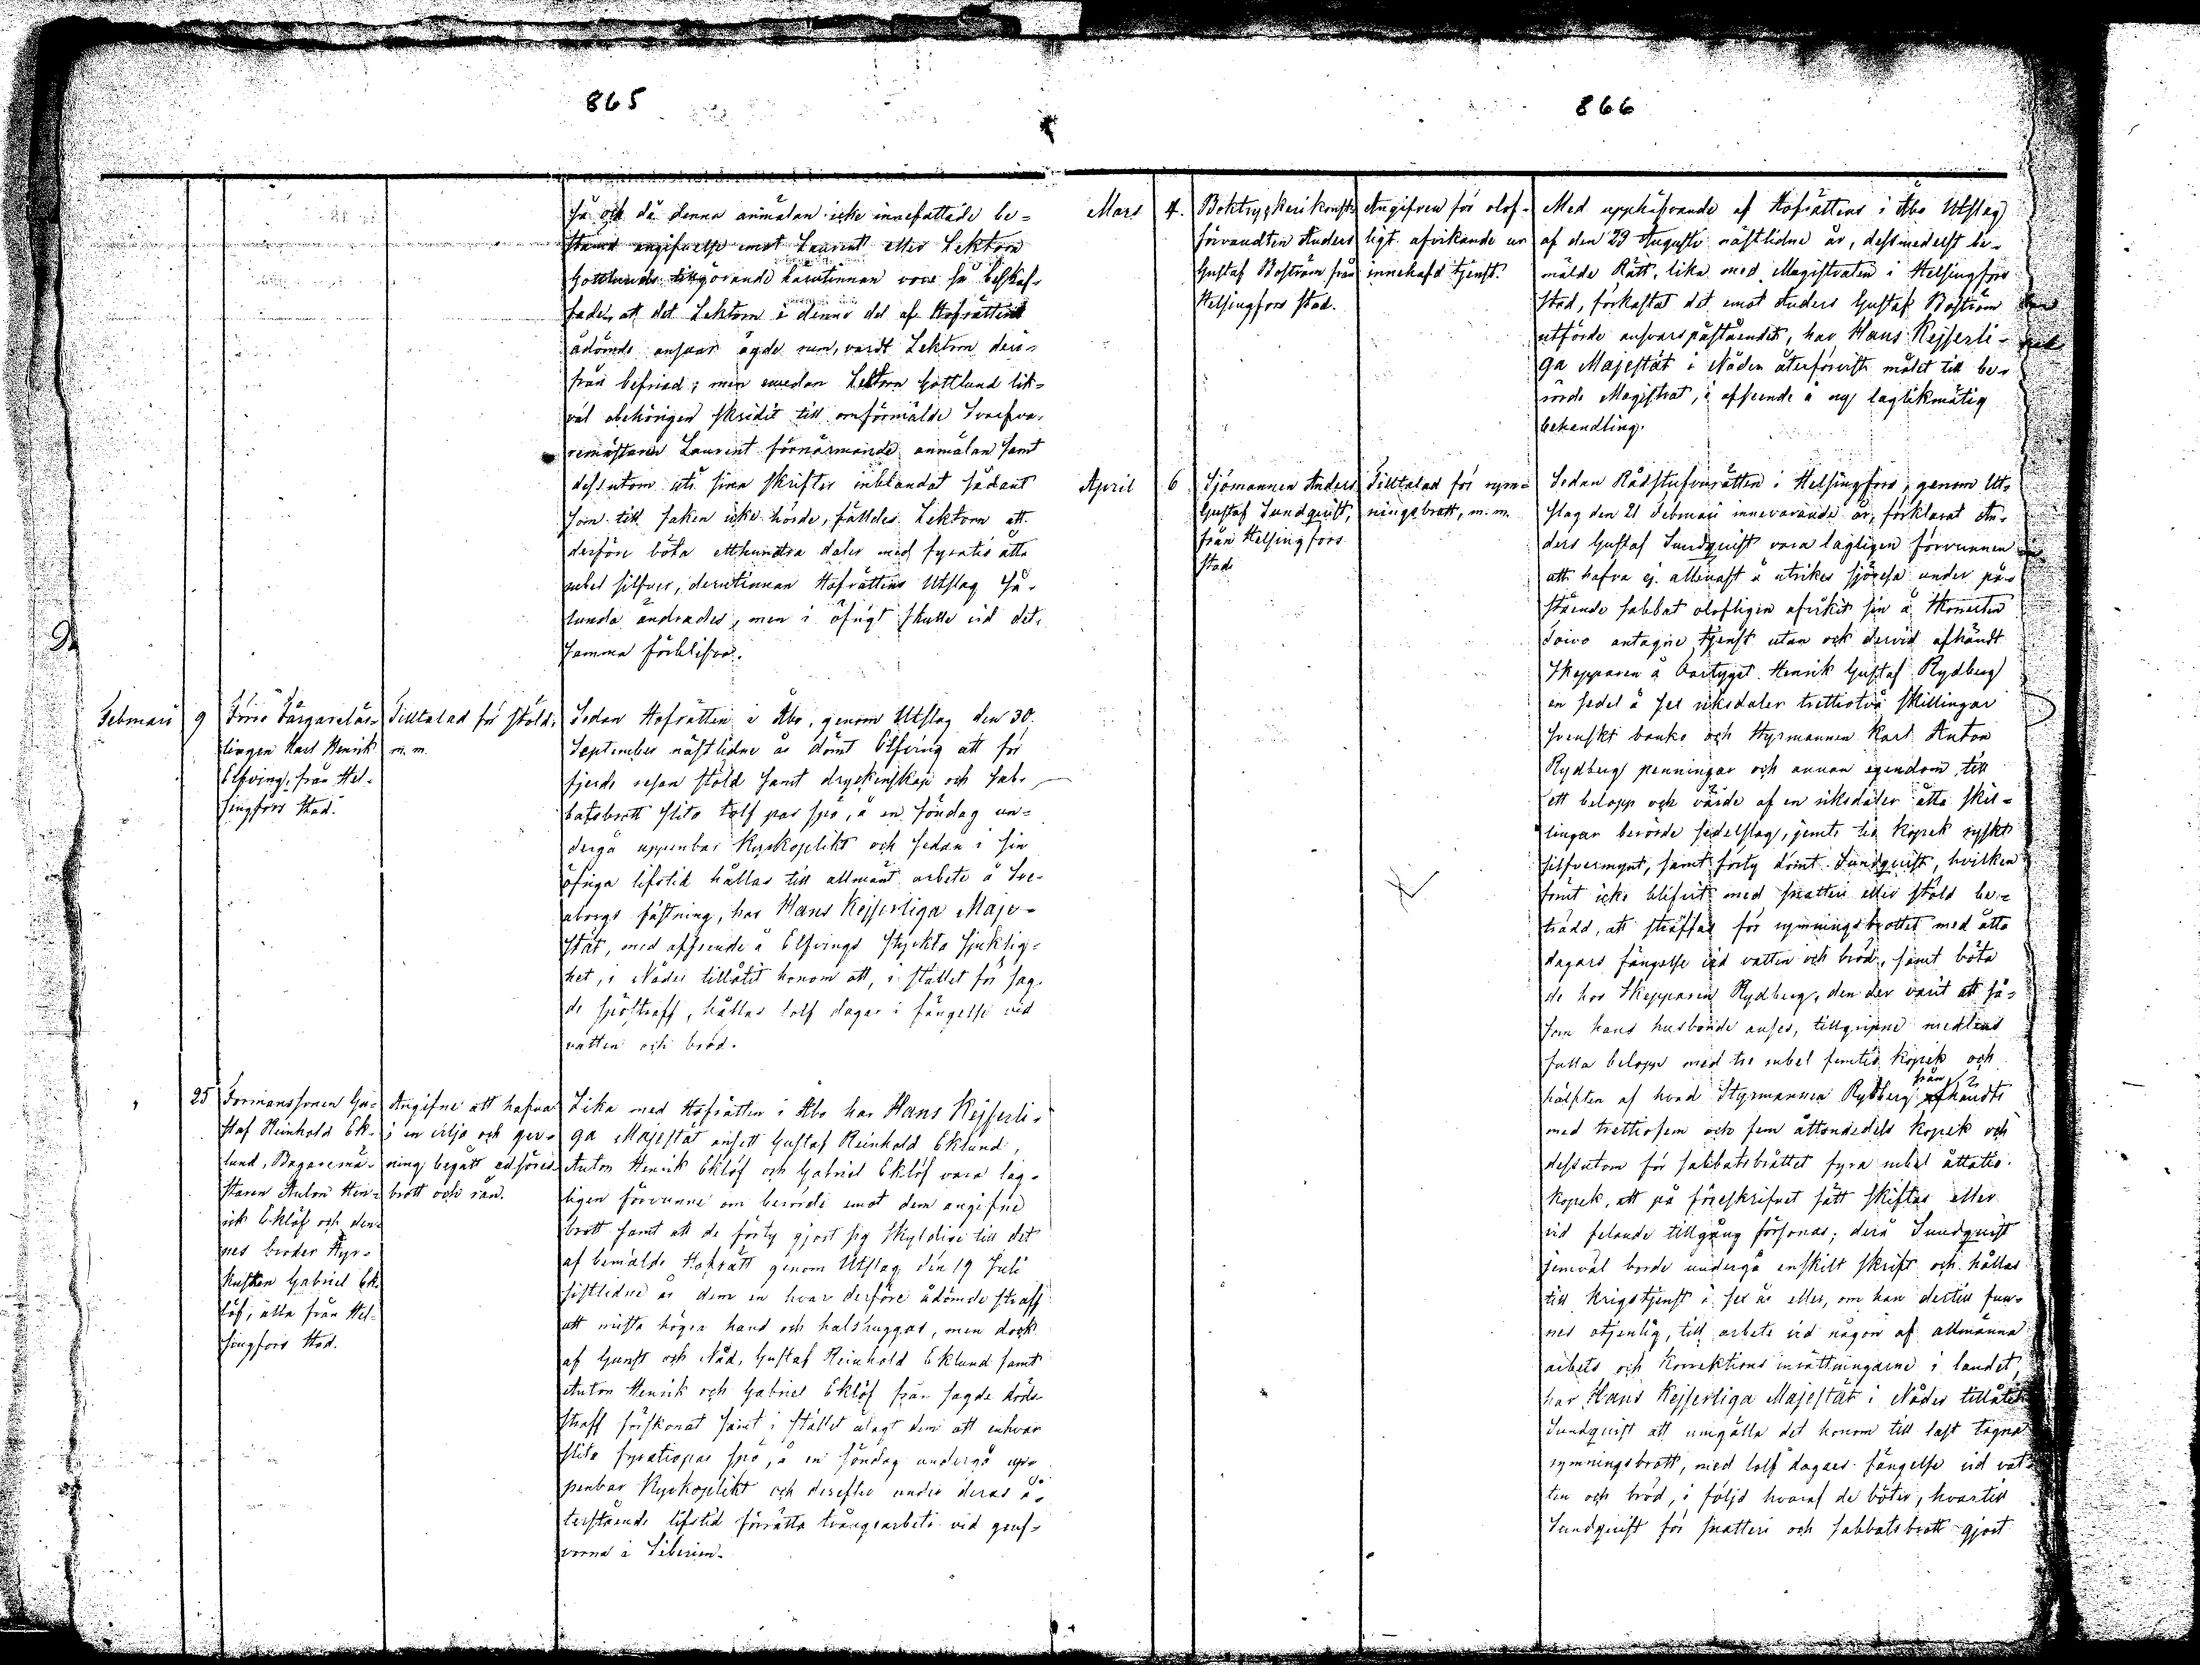 865
så ock då denna anmälan icke innefattade be-
stämd angifvelse emot Laurent eller Lektorn
Gottlunds åtgörande härutinnan vore så beskaf-
fadt, att det Lektorn i denna del af Hofrätten
ådömde ansvar ägde rum, vardt Lektorn deri-
från befriad; men emedan Lektorn Gottlund lik-
väl obehörigen skridit till omförmälde Svarfva-
remästaren Laurent förnärmande anmälan samt
dessutom uti sina skrifter inblandat sådant
som till saken icke hörde, fälldes Lektorn att
derföre böta etthundra daler med fyratio åtta
rubel silfver, derutinnan Hofrättens Utslag så-
lunda ändrades, men i öfrigt skulle vid det-
samma förblifva.
Februari 9
Förre Färgarelär-
lingen Karl Henrik
Elfving, från Hel-
singfors stad.
Tilltalad för stöld
m. m.
Sedan Hofrätten i Åbo, genom Utslag den 30.
September nästlidne år dömt Elfving att för
fjerde resan stöld samt dryckenskap och sab-
batsbrott slita tolf par spö, å en söndag un-
dergå uppenbar Kyrkoplikt och sedan i sin
öfriga lifstid hållas till allmänt arbete å Sve-
aborgs fästning, har Hans Kejserliga Maje-
stät, med afseende å Elfvings styrkta sjuklig-
het, i Nåder tillåtit honom att, i stället för sag-
de spöstraff, hållas tolf dagar i fängelse vid
vatten och bröd.
" 25
Formanssonen Gu-
staf Reinhold Ek-
lund, Bagaremä-
staren Anton Hen-
rik Eklöf och den-
nes broder Hyr-
kusken Gabriel Ek-
löf, alla från Hel-
singfors stad.
Angifne att hafva
i en vilja och ger-
ning begått edsöres-
brott och rån.
Lika med Hofrätten i Åbo har Hans Kejserli-
ga Majestät ansett Gustaf Reinhold Eklund,
Anton Henrik Eklöf och Gabriel Eklöf vara lag-
ligen förvunne om berörde emot dem angifne
brott samt att de förty gjort sig skyldige till det
af bemälde Hofrätt genom Utslag den 19 Juli
sistlidne år dem en hvar derföre ådömde straff
att mista högra hand och halshuggas, men dock
af Gunst och Nåd, Gustaf Reinhold Eklund samt
Anton Henrik och Gabriel Eklöf från sagde döds-
straff förskonat samt i stället ålagt dem att enhvar
slita fyratiopar spö, å en söndag undergå up-
penbar Kyrkoplikt och derefter under deras å-
terstående lifstid förrätta tvångsarbete vid gruf-
vorna i Siberien.
866
Mars 4.
Boktryckerikonst-
förvandten Anders
Gustaf Boström från
Helsingfors stad.
Angifven för olof-
ligt afvikande ur
innehafd tjenst.
Med upphäfvande af Hofrättens i Åbo Utslag
af den 29 Augusti nästlidne år, dessmedelst be-
mälde Rätt, lika med Magistraten i Helsingfors
stad, förkastat det emot Anders Gustaf Boström
utförde ansvarspåståendet, har Hans Kejserli-
ga Majestät i Nåder återförvist målet till be-
rörde Magistrat, i afseende å ny laglikmätig
behandling.
April 6
Sjömannen Anders
Gustaf Sundquist,
från Helsingfors
stad
Tilltalad för rym-
ningsbrott, m. m.
Sedan Rådstufvurätten i Helsingfors, genom Ut-
slag den 21 Februari innevarande år, förklarat An-
ders Gustaf Sundquist vara lagligen förvunnen
att hafva ej allenast å utrikes sjöresa under på-
stående sabbat olofligen afvikit från å Skonerten
Toivo antagne tjenst utan ock dervid afhändt
Skepparen å Fartyget Henrik Gustaf Rydberg
en sedel å sex riksdaler trettiotvå skillingar
svenskt banko och Styrmannen Karl Anton
Rydberg penningar och annan egendom till
ett belopp och värde af en riksdaler åtta skil-
lingar berörde sedelslag, jemte tio kopek ryskt
silfvermynt, samt förty dömt Sundquist, hvilken
förut icke blifvit med snatteri eller stöld be-
trädd, att straffas för rymningsbrottet med åtta
dagars fängelse vid vatten och bröd, samt böta
de hos Skepparen Rydberg, den der varit att så-
som hans husbonde anses, tillgripne medlens
fulla belopp med tre rubel femtio kopek och
hälften af hvad Styrmannen Rydberg från händts
med trettiofem och fem åttondedels kopek och
dessutom för sabbatsbrottet fyra rubel åttatio
kopek, att på föreskrifvet sätt skiftas eller
vid felande tillgång försonas; derå Sundquist
jemväl borde undergå enskilt skrift och hållas
till krigstjenst i sex år eller, om han dertill fun-
nes otjenlig, till arbete vid någon af allmänna
arbets och korrektions inrättningarne i landet,
har Hans Kejserliga Majestät i Nåder tillåtit
Sundquist att umgälla det honom till last tagna
rymningsbrott, med tolf dagars fängelse vid vat-
ten och bröd, i följd hvaraf de böter, hvartill
Sundquist för snatteri och sabbatsbrott gjort